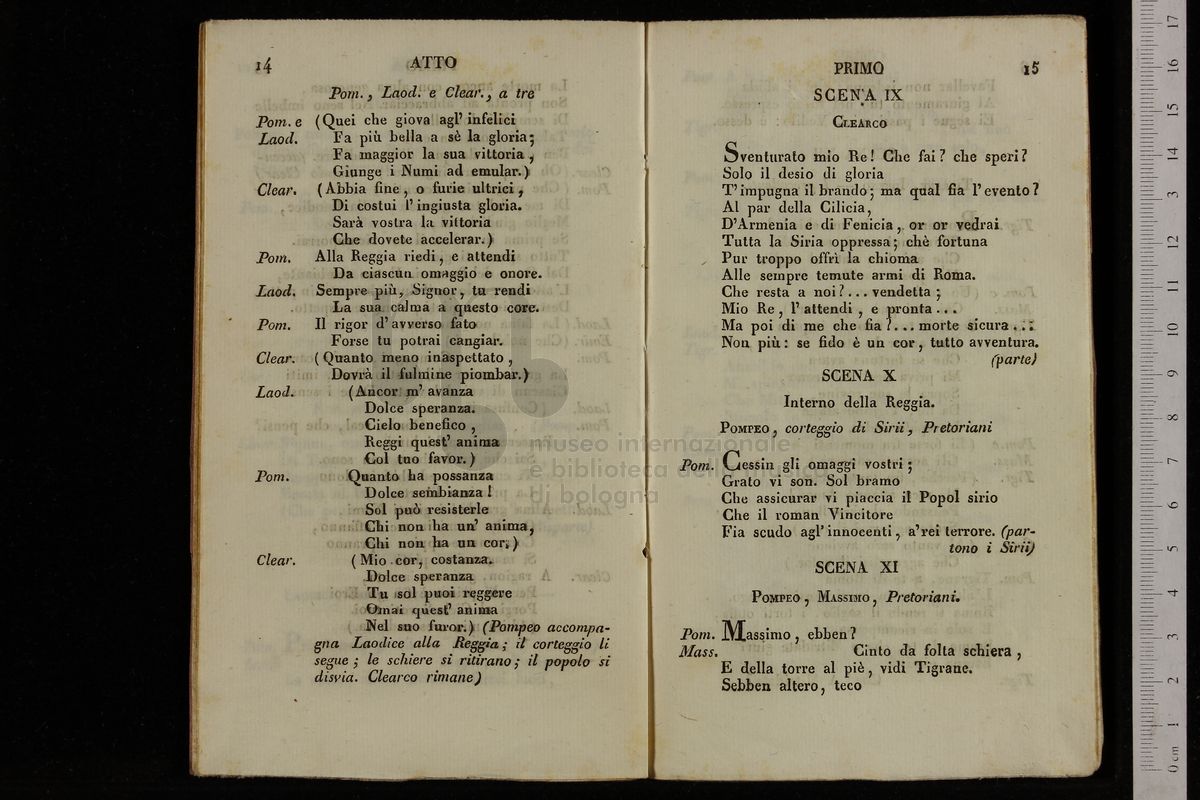 14 ATTO
Pom., Laod. e Clear., a tre
Pom. e (Quei che giova agl' infelici
Laod. Fa più bella a sè la gloria;
Fa maggior la sua vittoria,
Giunge i Numi ad emular.)
Clear. (Abbia fine, o furie ultrici,
Di costui l'ingiusta gloria.
Sarà vostra la vittoria
Che dovete accelerar.)
Pom. Alla Reggia riedi, e attendi
Da ciascun omaggio e onore.
Laod. Sempre più, Signor, tu rendi
La sua calma a questo core.
Pom. Il rigor d'avverso fato
Forse tu potrai cangiar.
Clear. (Quanto meno inaspettato,
Dovrà il fulmine piombar.)
Laod. (Ancor m' avanza
Dolce speranza.
Cielo benefico,
Reggi quest' anima
Col tuo favor.)
Pom. Quanto ha possanza
Dolce sembianza!
Sol può resisterle
Chi non ha un' anima,
Chi non ha un cor;)
Clear. (Mio cor, costanza.
Dolce speranza
Tu sol puoi reggere
Omai quest' anima
Nel suo furor.) (Pompeo accompa-
gna Laodice alla Reggia; il corteggio li
segue; le schiere si ritirano; il popolo si
disvia. Clearco rimane)
PRIMO 15
SCENA IX
CLEARCO
Sventurato mio Re! Che fai? che speri?
Solo il desio di gloria
T'impugna il brando; ma qual fia l'evento?
Al par della Cilicia,
D'Armenia e di Fenicia, or or vedrai
Tutta la Siria oppressa; chè fortuna
Pur troppo offrì la chioma
Alle sempre temute armi di Roma.
Che resta a noi?... vendetta;
Mio Re, l'attendi, e pronta...
Ma poi di me che fia?... morte sicura...
Non più: se fido è un cor, tutto avventura.
(parte)
SCENA X
Interno della Reggia.
POMPEO, corteggio di Sirii, Pretoriani
Pom. Cessin gli omaggi vostri;
Grato vi son. Sol bramo
Che assicurar vi piaccia il Popol sirio
Che il roman Vincitore
Fia scudo agl'innocenti, a'rei terrore. (par-
tono i Sirii)
SCENA XI
POMPEO, MASSIMO, Pretoriani.
Pom. Massimo, ebben?
Mass. Cinto da folta schiera,
E della torre al piè, vidi Tigrane.
Sebben altero, teco
museo internazionale
e biblioteca della musica
di bologna
0 cm 1 2 3 4 5 6 7 8 9 10 11 12 13 14 15 16 17